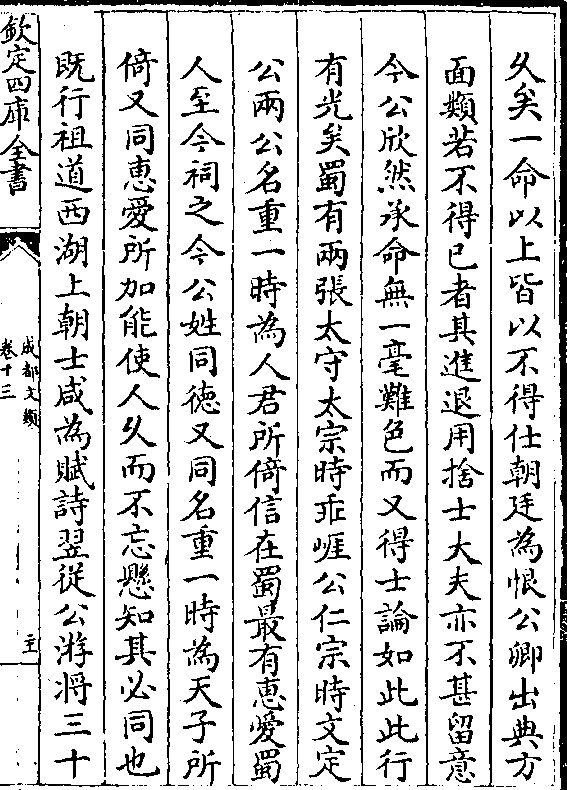 久矣一命以上皆以不得仕朝廷為恨公卿出典方
面類若不得已者其進退用捨士大夫亦不甚留意
今公欣然承命無一毫難色而又得士論如此此行
有光矣蜀有兩張太守太宗時乖崖公仁宗時文定
公兩公名重一時為人君所倚信在蜀最有惠愛蜀
人至今祠之今公姓同徳又同名重一時為天子所
倚又同惠愛所加能使人久而不忘懸知其必同也
既行祖道西湖上朝士咸為賦詩翌従公游将三十
欽定四庫全書
成都文類
卷十三